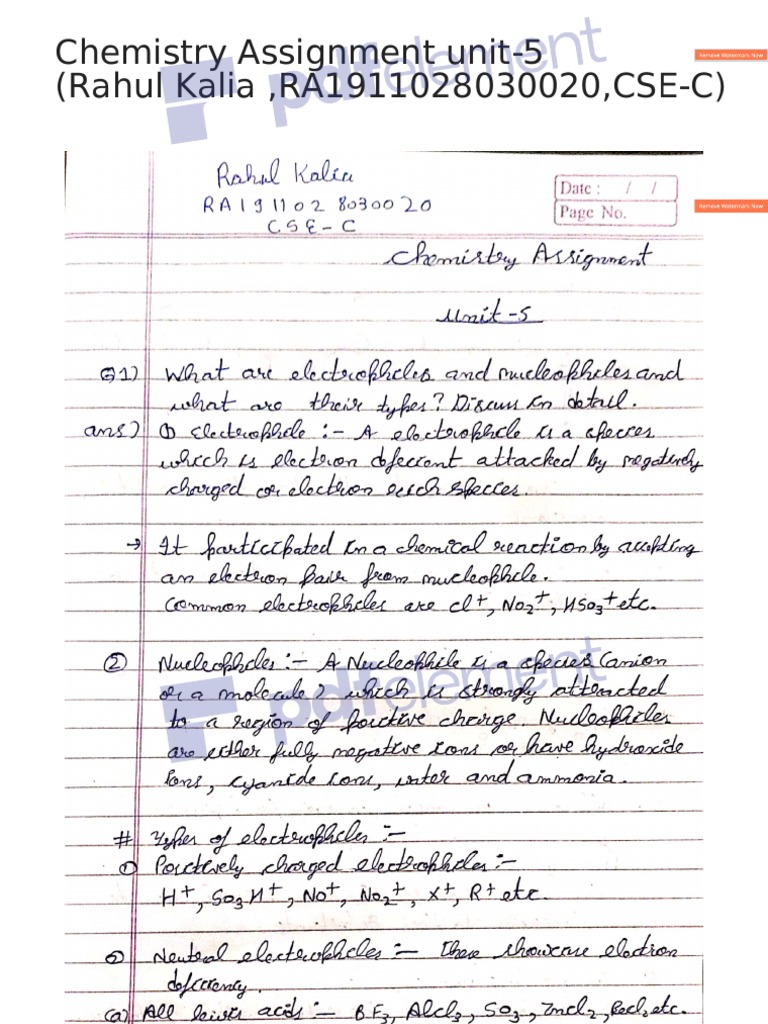 Chemistry Assignment unit-5
(Rahul Kalia ,RA1911028030020,CSE-C)
pdfelement
Remove Watermark Now
Rahul Kalia
RA1911028030020
CSE-C
Date : / /
Page No.
Remove Watermark Now
Chemistry Assignment
Unit-5
Q1) What are electrophiles and nucleophiles and
what are their types? Discuss in detail.
ans) ① Electrophile :- A electrophile is a species
which is electron deficient attacked by negatively
charged or electron rich species.
→ It participated in a chemical reaction by accepting
an electron pair from nucleophile.
Common electrophiles are Cl+, NO2+, HSO3+ etc.
② Nucleophiles :- A Nucleophile is a species (anion
or a molecule) which is strongly attracted
to a region of positive charge. Nucleophiles
are either fully negative ions or have hydroxide
Ions, cyanide ions, water and ammonia.
pdfelement
# Types of electrophiles :-
① Positively charged electrophiles :-
H+, SO3H+, NO+, NO2+, X+, R+ etc.
② Neutral electrophiles :- These showcase electron
deficiency.
(a) All lewis acids :- BF3, AlCl3, SO3, ZnCl2, BeCl2 etc.